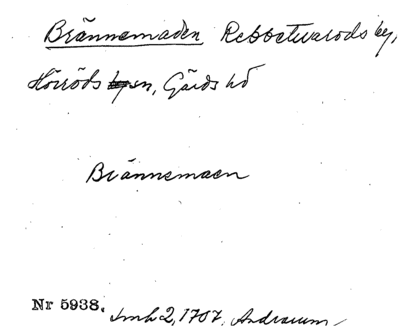 Brännemaden Rebbetuaröds by,
Hörröds sn, Gärds hd
Brännemaen
Nr 5938. Smh 2, 1707, Andrarum